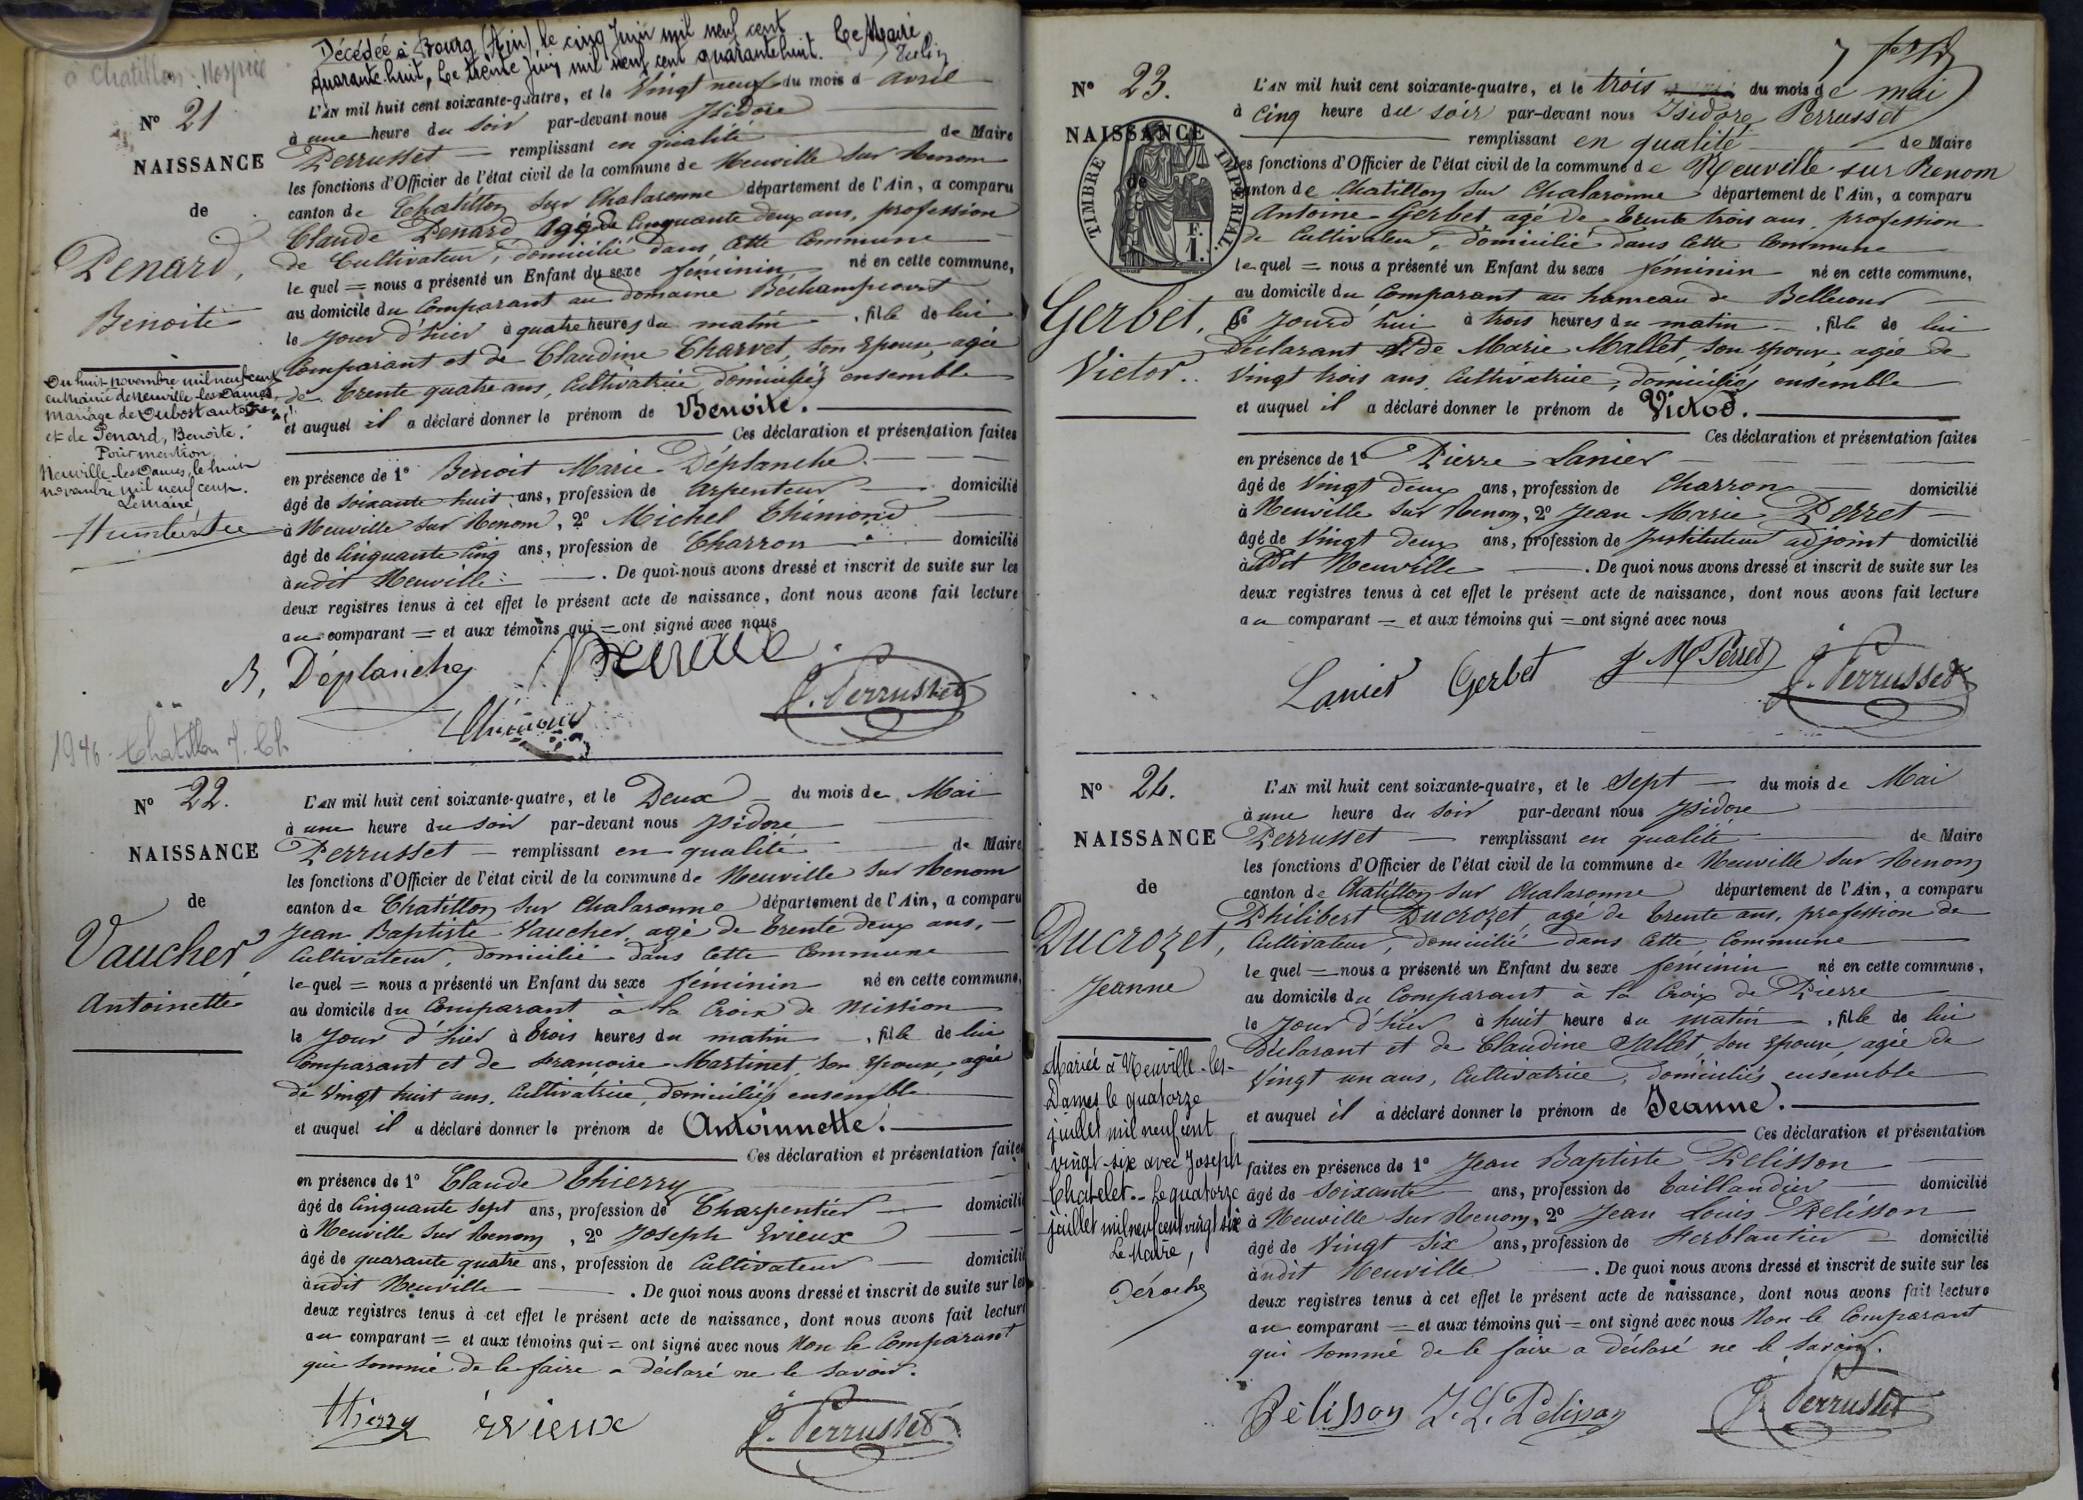 Décédée à Bourg (Ain) le cinq Juin mil neuf cent
quarante-huit, le trente Juin mil neuf cent quarante huit. Le Maire
à Chatillon. Hospice
N° 21
NAISSANCE
de
Penard,
Benoite
L'AN mil huit cent soixante-quatre, et le Vingt neuf du mois d avril
à une heure du soir par-devant nous Isidore
Perrusset remplissant en qualité de Maire
les fonctions d'Officier de l'état civil de la commune de Neuville sur Renom
canton de Chatillon sur Chalaronne département de l'Ain, a comparu
Claude Penard agé de Cinquante deux ans, profession
de Cultivateur, domicilié dans cette Commune
le quel = nous a présenté un Enfant du sexe féminin né en cette commune,
au domicile du Comparant au domaine Bechampcourt
le jour d'hier à quatre heures du matin, fille de lui
Comparant et de Claudine Charvet, son Epouse, agée
de trente quatre ans, Cultivatrice, domiciliés ensemble
et auquel il a déclaré donner le prénom de Benoite.
Ces déclaration et présentation faites
en présence de 1° Benoit Marie Déplanche
âgé de soixante huit ans, profession de Arpenteur domicilié
à Neuville sur Renom, 2° Michel Thimond
âgé de Cinquante Cinq ans, profession de Charron domicilié
à udit Neuville. De quoi nous avons dressé et inscrit de suite sur les
deux registres tenus à cet effet le présent acte de naissance, dont nous avons fait lecture
au comparant = et aux témoins qui = ont signé avec nous
Du huit novembre mil neuf cent
en Mairie de Neuville-les-Dames,
Mariage de Dubost antoine
et de Penard, Benoite.
Pour mention
Neuville-les-Dames, le huit
novembre mil neuf cent.
Le Maire,
B. Déplanche
J. Perrusset
1946 - Chatillon s. Ch
N° 22.
NAISSANCE
de
Vaucher,
Antoinette
L'AN mil huit cent soixante-quatre, et le Deux du mois de Mai
à une heure du soir par-devant nous Isidore
Perrusset remplissant en qualité de Maire
les fonctions d'Officier de l'état civil de la commune de Neuville sur Renom
canton de Chatillon sur Chalaronne département de l'Ain, a comparu
Jean Baptiste Vaucher agé de trente deux ans,
Cultivateur, domicilié dans cette Commune
le quel = nous a présenté un Enfant du sexe féminin né en cette commune,
au domicile du Comparant à la Croix de Mission
le jour d'hier à trois heures du matin, fille de lui
Comparant et de françoise Martinet, son Epouse, agée
de Vingt huit ans, Cultivatrice, domiciliés ensemble
et auquel il a déclaré donner le prénom de Antoinnette.
Ces déclaration et présentation faites
en présence de 1° Claude Thierry
âgé de Cinquante sept ans, profession de Charpentier domicilié
à Neuville sur Renom, 2° Joseph Evieux
âgé de quarante quatre ans, profession de Cultivateur domicilié
à udit Neuville. De quoi nous avons dressé et inscrit de suite sur les
deux registres tenus à cet effet le présent acte de naissance, dont nous avons fait lecture
au comparant = et aux témoins qui = ont signé avec nous Non le Comparant
qui sommé de le faire a déclaré ne le savoir.
Thierry Evieux J. Perrusset
7
N° 23.
NAISSANCE
de
TIMBRE IMPERIAL.
F. 1.
Gerbet,
Victor.
L'AN mil huit cent soixante-quatre, et le trois du mois de mai
à Cinq heure du soir par-devant nous Isidore Perrusset
remplissant en qualité de Maire
les fonctions d'Officier de l'état civil de la commune de Neuville sur Renom
canton de Chatillon sur Chalaronne département de l'Ain, a comparu
Antoine Gerbet agé de trente trois ans, profession
de Cultivateur, domicilié dans cette Commune
le quel = nous a présenté un Enfant du sexe féminin né en cette commune,
au domicile du Comparant au hameau de Bellecour
Ce jourd'hui à trois heures du matin, fille de lui
Déclarant et de Marie Mallet, son Epouse agée de
Vingt trois ans, Cultivatrice, domiciliés ensemble
et auquel il a déclaré donner le prénom de Victor.
Ces déclaration et présentation faites
en présence de 1° Pierre Lanier
âgé de Vingt deux ans, profession de Charron domicilié
à Neuville sur Renom, 2° Jean Marie Perret
âgé de Vingt deux ans, profession de Instituteur adjoint domicilié
à dit Neuville. De quoi nous avons dressé et inscrit de suite sur les
deux registres tenus à cet effet le présent acte de naissance, dont nous avons fait lecture
au comparant = et aux témoins qui = ont signé avec nous
Lanier Gerbet J M Perret J. Perrusset
N° 24.
NAISSANCE
de
Ducrozet,
Jeanne
L'AN mil huit cent soixante-quatre, et le Sept du mois de Mai
à une heure du soir par-devant nous Isidore
Perrusset remplissant en qualité de Maire
les fonctions d'Officier de l'état civil de la commune de Neuville sur Renom
canton de Chatillon sur Chalaronne département de l'Ain, a comparu
Philibert Ducrozet, agé de trente ans, profession de
Cultivateur, domicilié dans cette Commune
le quel = nous a présenté un Enfant du sexe féminin né en cette commune,
au domicile du Comparant à la Croix de Pierre
le jour d'hier à huit heure du matin, fille de lui
Déclarant et de Claudine Sallet, son Epouse, agée de
Vingt un ans, Cultivatrice, domiciliés ensemble
et auquel il a déclaré donner le prénom de Jeanne.
Ces déclaration et présentation
faites en présence de 1° Jean Baptiste Pelisson
âgé de soixante ans, profession de taillandier domicilié
à Neuville sur Renom, 2° Jean Louis Pelisson
âgé de Vingt six ans, profession de ferblantier domicilié
à udit Neuville. De quoi nous avons dressé et inscrit de suite sur les
deux registres tenus à cet effet le présent acte de naissance, dont nous avons fait lecture
au comparant = et aux témoins qui = ont signé avec nous Non le Comparant
qui sommé de le faire a déclaré ne le savoir.
Mariée à Neuville-les-
Dames le quatorze
juillet mil neuf cent
vingt-six avec Joseph
Chatelet. Le quatorze
juillet mil neuf cent vingt six
Le Maire,
Pèlisson J. L. Pelisson J. Perrusset